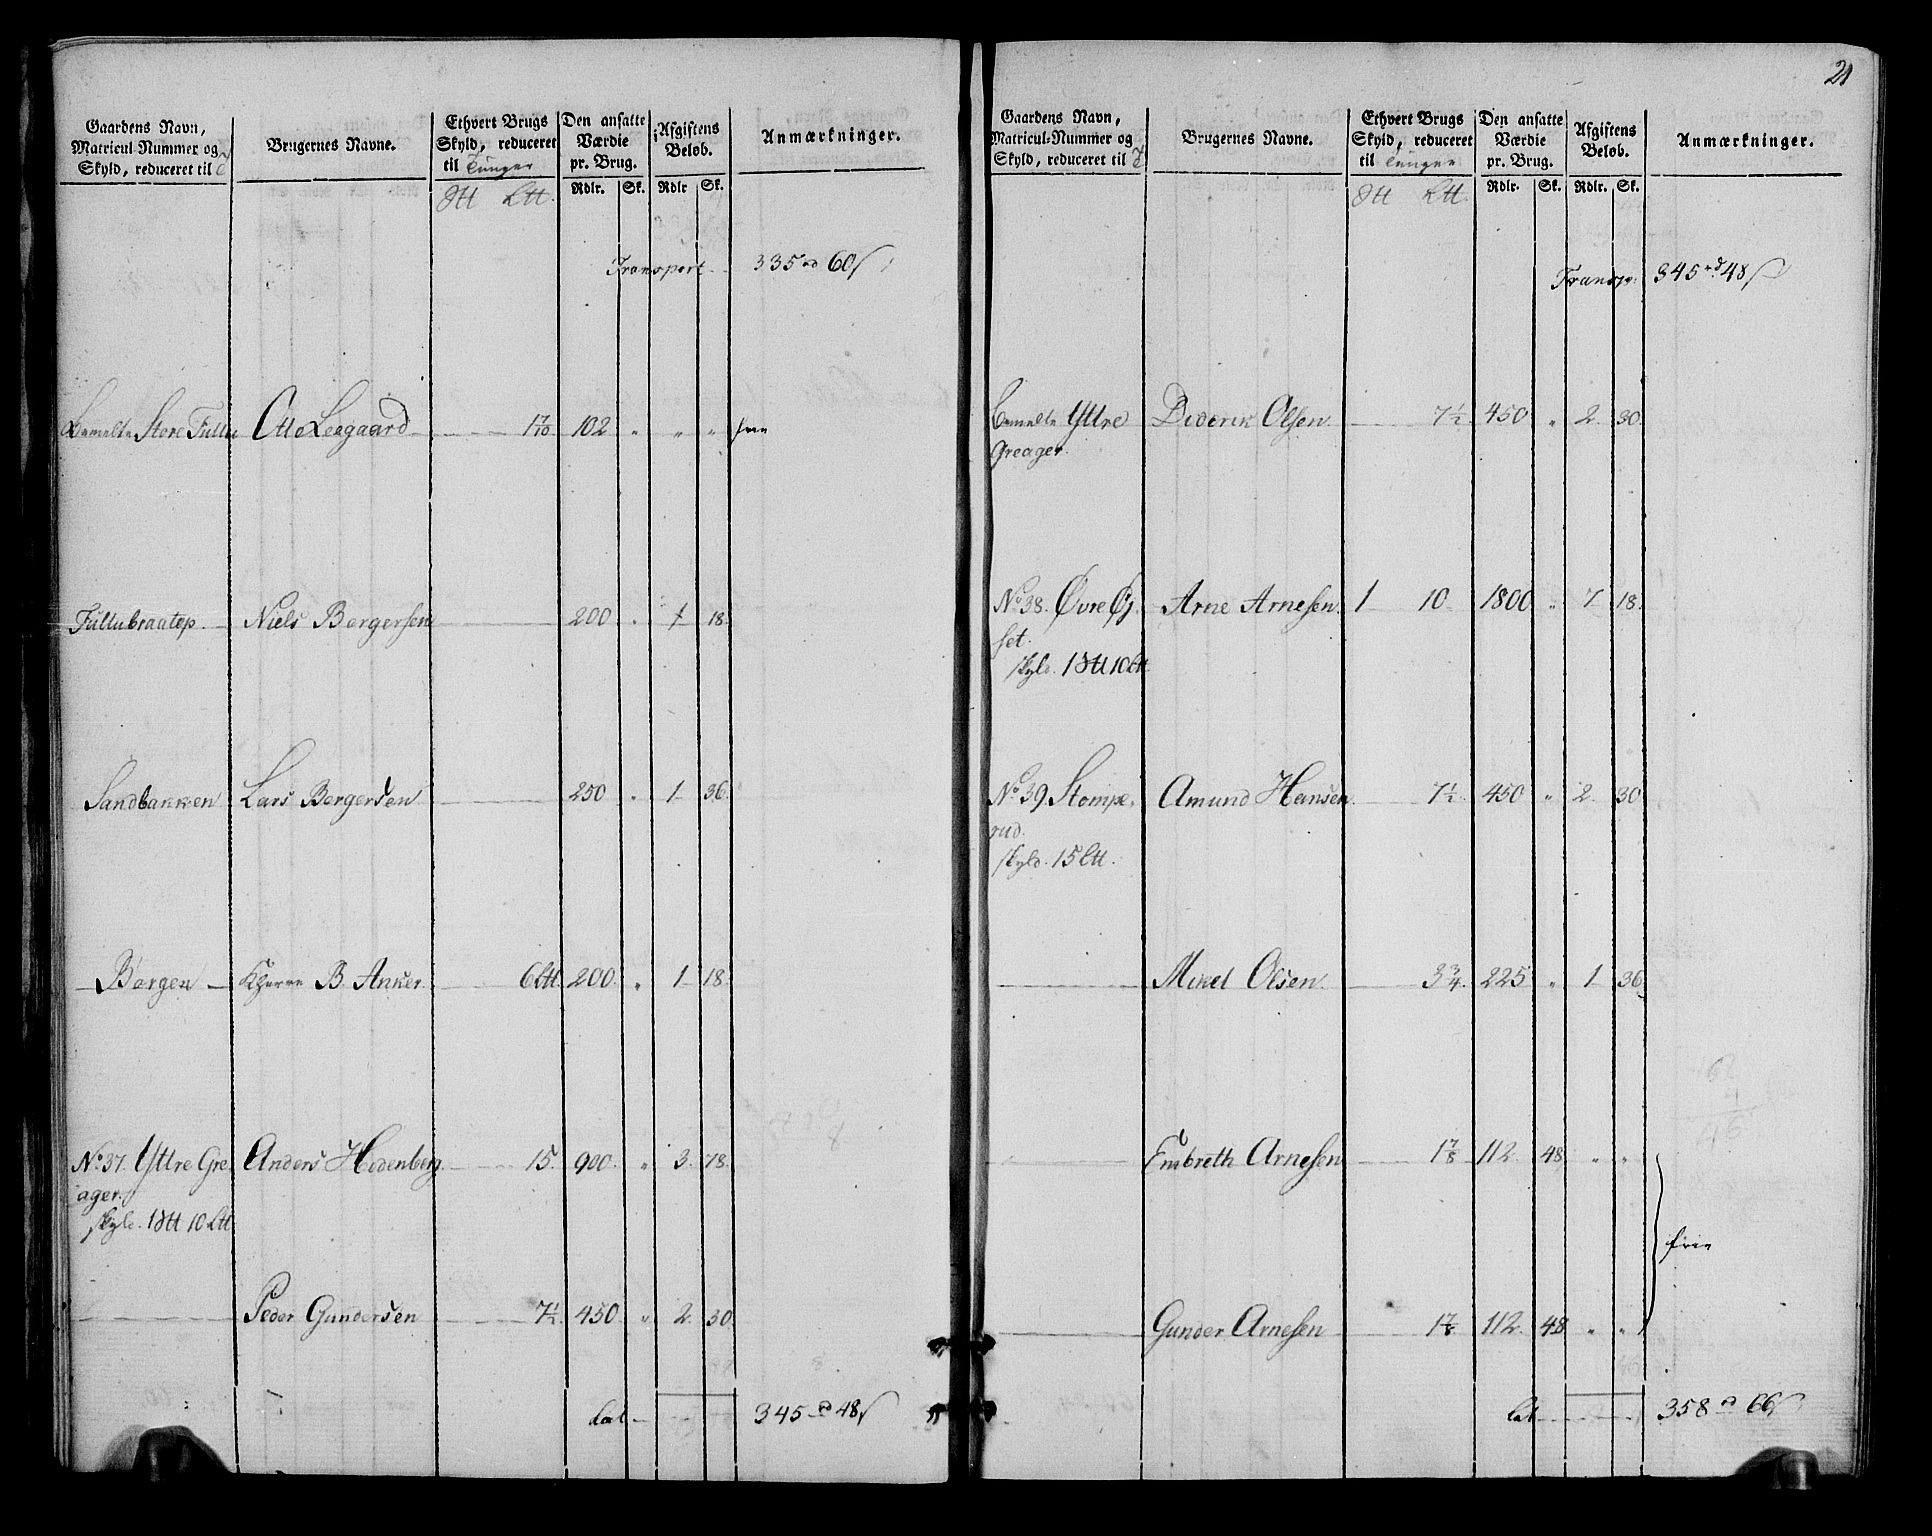 Gaardens Navn,
Matricul-Nummer og
Skyld, reduceret til T
Brugernes Navne.
Ethvert Brugs
Skyld, reduceret
til Tunger
Den ansatte
Værdie
pr. Brug.
Afgiftens
Beløb.
Anmærkninger.
Rdlr. Sk. Rdlr Sk.
Transport 335 rd 60 s
Bemelte Store Fullu Otto Leegaard 1 7/10 102 " " " frie
Fullubraatep. Niels Børgersen 200 " 1 18.
Sandbakken Lars Børgersen 250 " 1 36.
Børgen B. Anker. 6 Ltt 200. " 1 18.
No 37. Yttre Gre Anders Hodenberg 15. 900. " 3. 78.
ager.
skyld. 1 Sktt 10 Ltt
Peder Gundersen 7½. 450 " 2. 30.
Lat 345 rd 48 s
21
Gaardens Navn,
Matricul-Nummer og
Skyld, reduceret til T
Brugernes Navne.
Ethvert Brugs
Skyld, reduceret
til Tunger
Den ansatte
Værdie
pr. Brug.
Afgiftens
Beløb.
Anmærkninger.
Rdlr. Sk. Rdlr. Sk.
Transp: 345 rd 48 s
Bemelte Yttre Diderik Olsen. 7½. 450 " 2. 30.
Greager.
No 38. Øvre Øj Arne Arnesen. 1 10. 1800 " 7 18.
set.
skyld. 1 Sktt 10 Ltt
No 39. Stompe, Amund Hansen 7½. 450 " 2. 30
rud.
skyld. 15 Ltt.
Mikel Olsen. 3¾. 225 " 1 36
Embreth Arnesen 1⅞ 112. 48 " "
frie
Gunder Arnesen 1⅞. 112. 48 " "
Lat 358 rd 66 s